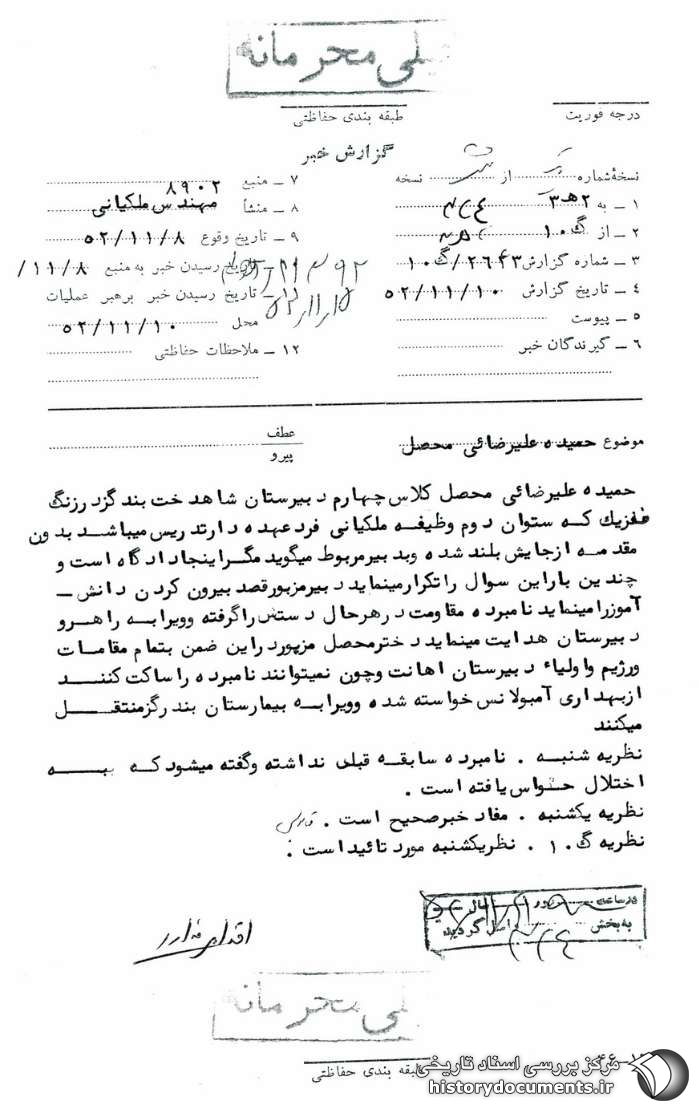 خیلی محرمانه
درجه فوریت
طبقه بندی حفاظتی
گزارش خبر
نسخهٔ شماره از نسخه
۱ ـ به ۲هـ۳
۲ ـ از گ ۱۰
۳ ـ شماره گزارش ۲۶۴۳/گ ۱۰
۴ ـ تاریخ گزارش ۵۲/۱۱/۱۰
۵ ـ پیوست
۶ ـ گیرندگان خبر
۷ ـ منبع ۸۹۰۲
۸ ـ منشأ مهندس ملکیانی
۹ ـ تاریخ وقوع ۵۲/۱۱/۸
تاریخ رسیدن خبر به منبع ۱۱/۸/
۱۱ـ تاریخ رسیدن خبر برهبر عملیات
محل ۵۲/۱۱/۱۰
۱۲ ـ ملاحظات حفاظتی
موضوع حمیده علیرضائی محصل
عطف
پیرو
حمیده علیرضائی محصل کلاس چهارم دبیرستان شاهدخت بندرگز در زنگ
فیزیک که ستوان دوم وظیفه ملکیانی فرد عهده دار تدریس میباشد بدون
مقدمه ازجایش بلند شده وبدبیرمربوط میگوید مگراینجا دادگاه است و
چندین باراین سوال راتکرارمینماید دبیرمزبورقصد بیرون کردن دانش ـ
آموزرامینماید نامبرده مقاومت درهرحال دستش راگرفته وویرابه راهرو
دبیرستان هدایت مینماید دخترمحصل مزبوردراین ضمن بتمام مقامات
ورژیم واولیاء دبیرستان اهانت وچون نمیتوانند نامبرده راساکت کنند
ازبهداری آمبولانس خواسته شده وویرابه بیمارستان بندرگزمنتقل
میکنند
نظریه شنبه . نامبرده سابقه قبلی نداشته وگفته میشود که به
اختلال حواس یافته است .
نظریه یکشنبه . مفاد خبرصحیح است .
نظریه گ ۱۰ . نظریکشنبه مورد تائیداست .
در ساعت روز
به بخش واصل گردید
اقدامی ندارد
خیلی محرمانه
طبقه بندی حفاظتی
مرکز بررسی اسناد تاریخی
historydocuments.ir